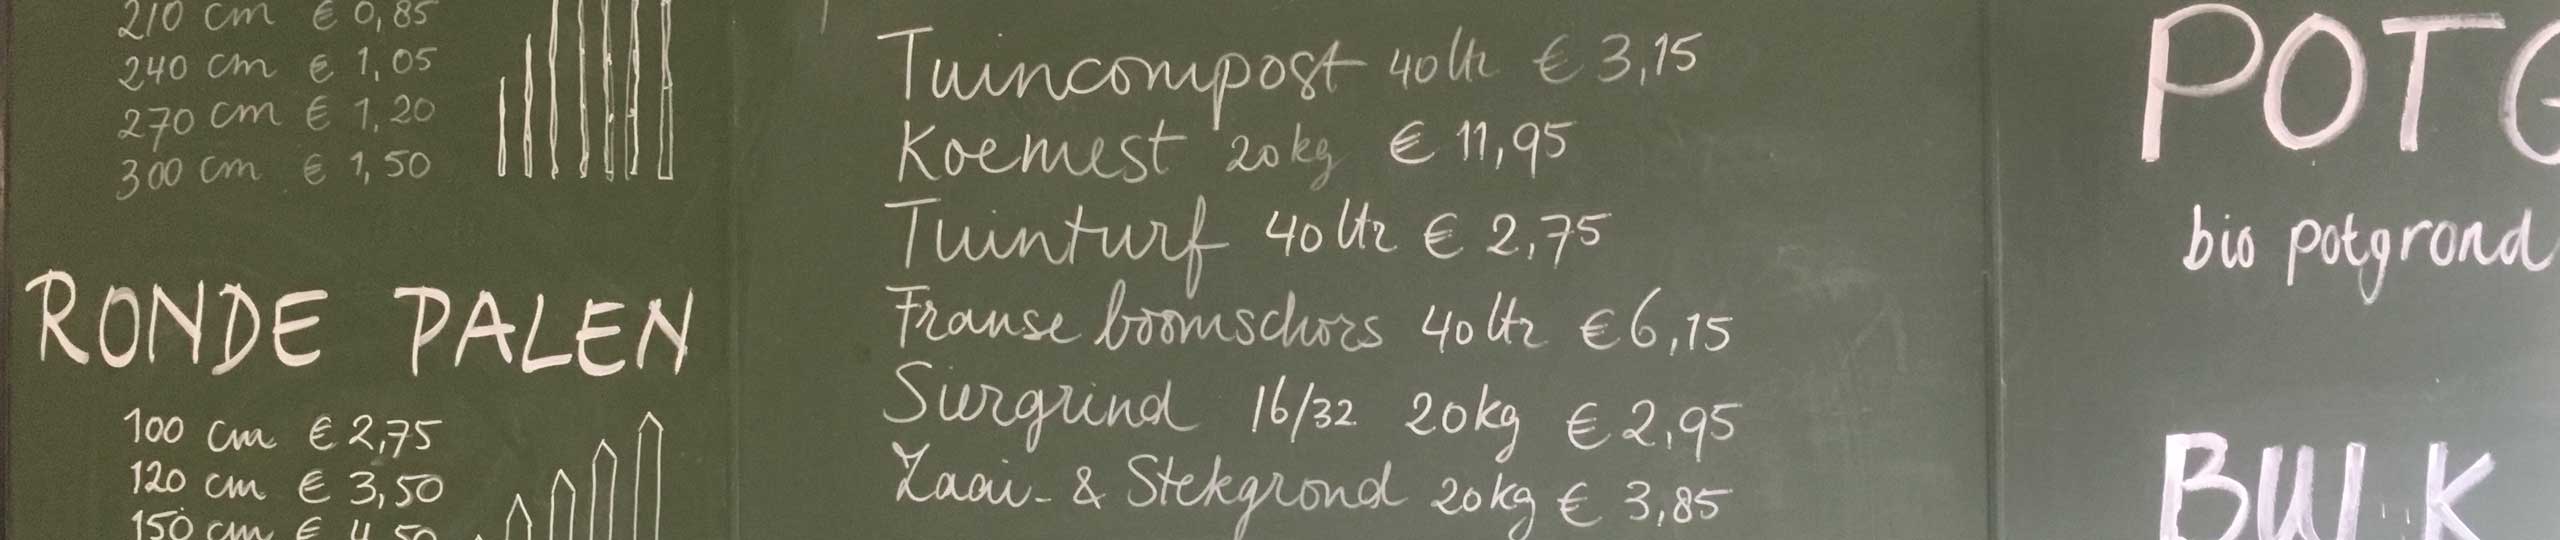 210 cm € 0,85
240 cm € 1,05
270 cm € 1,20
300 cm € 1,50
RONDE PALEN
100 cm € 2,75
120 cm € 3,50
150 cm € 4,50
Tuincompost 40 ltr € 3,15
Koemest 20 kg € 11,95
Tuinturf 40 ltr € 2,75
Franse boomschors 40 ltr € 6,15
Siergrind 16/32 20 kg € 2,95
Zaai- & Stekgrond 20 kg € 3,85
POTG
bio potgrond
BULK